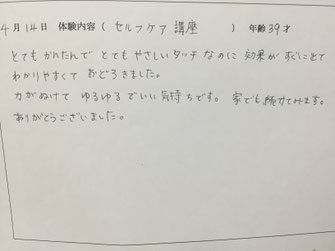 4月14日 体験内容（セルフケア 講座）年齢39才
とても かんたんで とても やさしい タッチ なのに 効果が すごいことて
わかりやすくて おどろきました。
力がぬけて ゆるゆるで いい気持ちです。 家でも 続けてみます。
ありがとうございました。